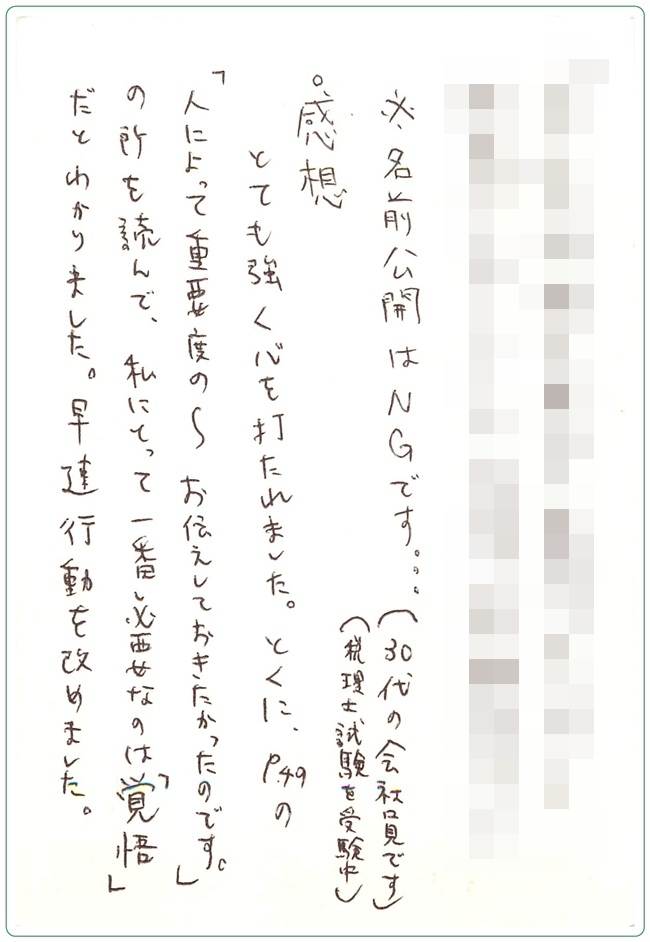 ※名前公開はNGです。。。(30代の会社員です)
(税理士試験を受験中)
○感想
とても強く心を打たれました。とくに、P.49の
「人によって重要度の〜お伝えしておきたかったのです。」
の所を読んで、私にとって一番必要なのは「覚悟」
だとわかりました。早速行動を改めました。